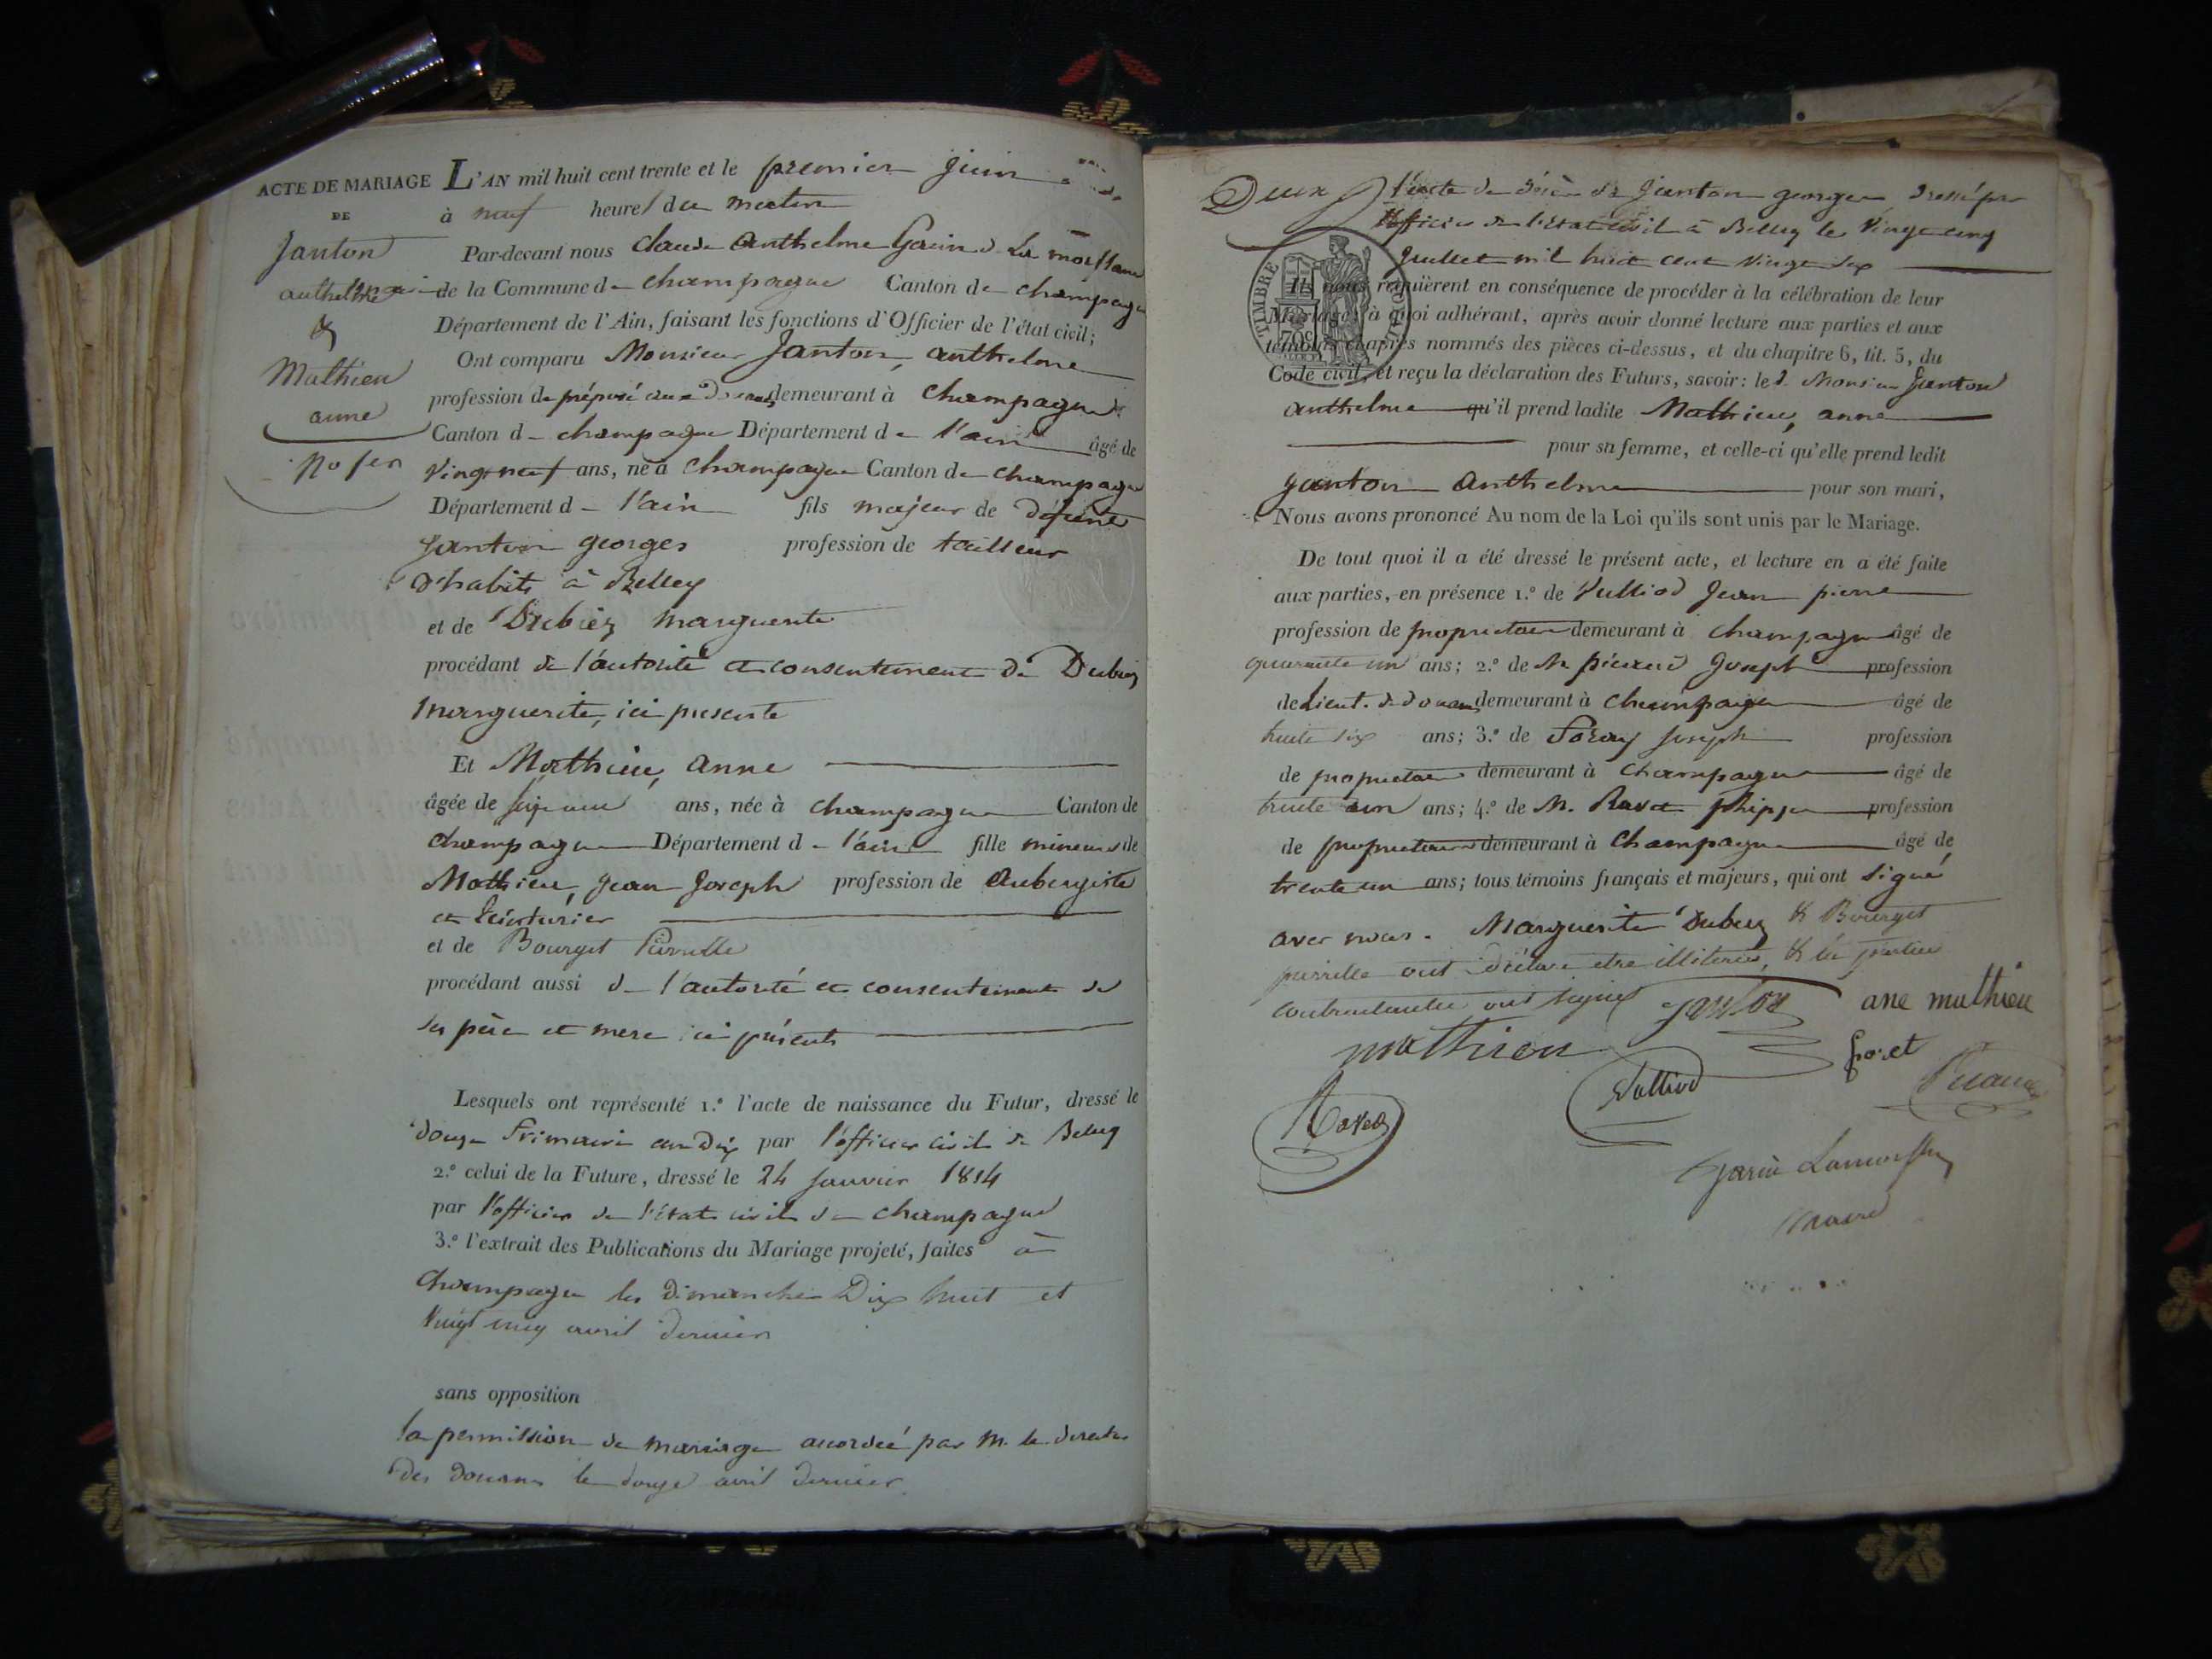 ACTE DE MARIAGE
DE
Janton
anthelme
&
Mathieu
anne
L'AN mil huit cent trente et le premier Juin
à neuf heures du matin
Par-devant nous Claude Anthelme Garin de La
de la Commune de champagne Canton de champagne
Département de l'Ain, faisant les fonctions d'Officier de l'état civil;
Ont comparu Monsieur Janton, anthelme
profession de préposé aux demeurant à Champagne
Canton de champagne Département de l'ain âgé de
Vingt neuf ans, né à Champagne Canton de champagne
Département de l'ain fils majeur de défunt
Janton georges profession de tailleur
d'habits à Belley
et de Marguerite
procédant de l'autorité et consentement de
Marguerite, ici presente
Et Mathieu, anne
âgée de ans, née à champagne Canton de
champagne Département de l'ain fille mineure de
Mathieu, Jean Joseph profession de Aubergiste
et teinturier
et de Bourget
procédant aussi de l'autorité et consentement de
ses père et mere ici présents
Lesquels ont représenté 1.º l'acte de naissance du Futur, dressé le
douze frimaire an Dix par l'officier civil de Belley
2.º celui de la Future, dressé le 24 Janvier 1814
par l'officier de l'état civil de champagne
3.º l'extrait des Publications du Mariage projeté, faites à
Champagne les dimanches Dix huit et
Vingt cinq avril dernier
sans opposition
la permission de mariage accordée par M. le directeur
des douanes le douze avril dernier.
Deux l'acte de décès de Janton georges dressé par
l'officier de l'état civil à Belley le Vingt cinq
Juillet mil huit cent vingt six
TIMBRE ROYAL
70c
Ils nous requièrent en conséquence de procéder à la célébration de leur
Mariage; à quoi adhérant, après avoir donné lecture aux parties et aux
témoins ci-après nommés des pièces ci-dessus, et du chapitre 6, tit. 5, du
Code civil, et reçu la déclaration des Futurs, savoir: le d. Monsieur Janton
anthelme qu'il prend ladite Mathieu, anne
pour sa femme, et celle-ci qu'elle prend ledit
Janton Anthelme pour son mari,
Nous avons prononcé Au nom de la Loi qu'ils sont unis par le Mariage.
De tout quoi il a été dressé le présent acte, et lecture en a été faite
aux parties, en présence 1.º de Vulliod Jean pierre
profession de proprietaire demeurant à champagne âgé de
quarante un ans; 2.º de M. Joseph profession
de Lieut. de douanes demeurant à Champagne âgé de
trente six ans; 3.º de Joseph profession
de proprietaire demeurant à Champagne âgé de
trente ans; 4.º de M. Ravet profession
de proprietaire demeurant à Champagne âgé de
trente un ans; tous témoins français et majeurs, qui ont signé
avec nous. Marguerite & Bourget
ont déclaré etre illiteres, & les parties
contractantes ont signé Janton ane mathieu
mathieu
Vulliod
Ravet
Garin
Maire